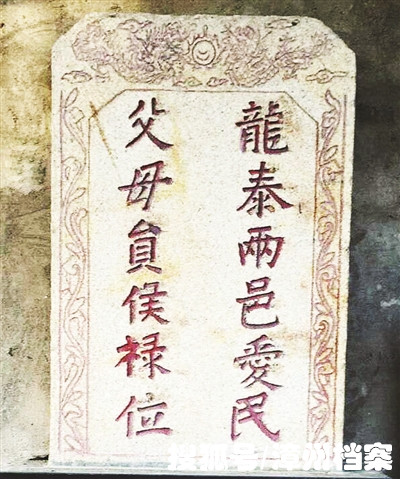 龍泰兩邑愛民
父母貟侯禄位
搜狐号/漳州档案